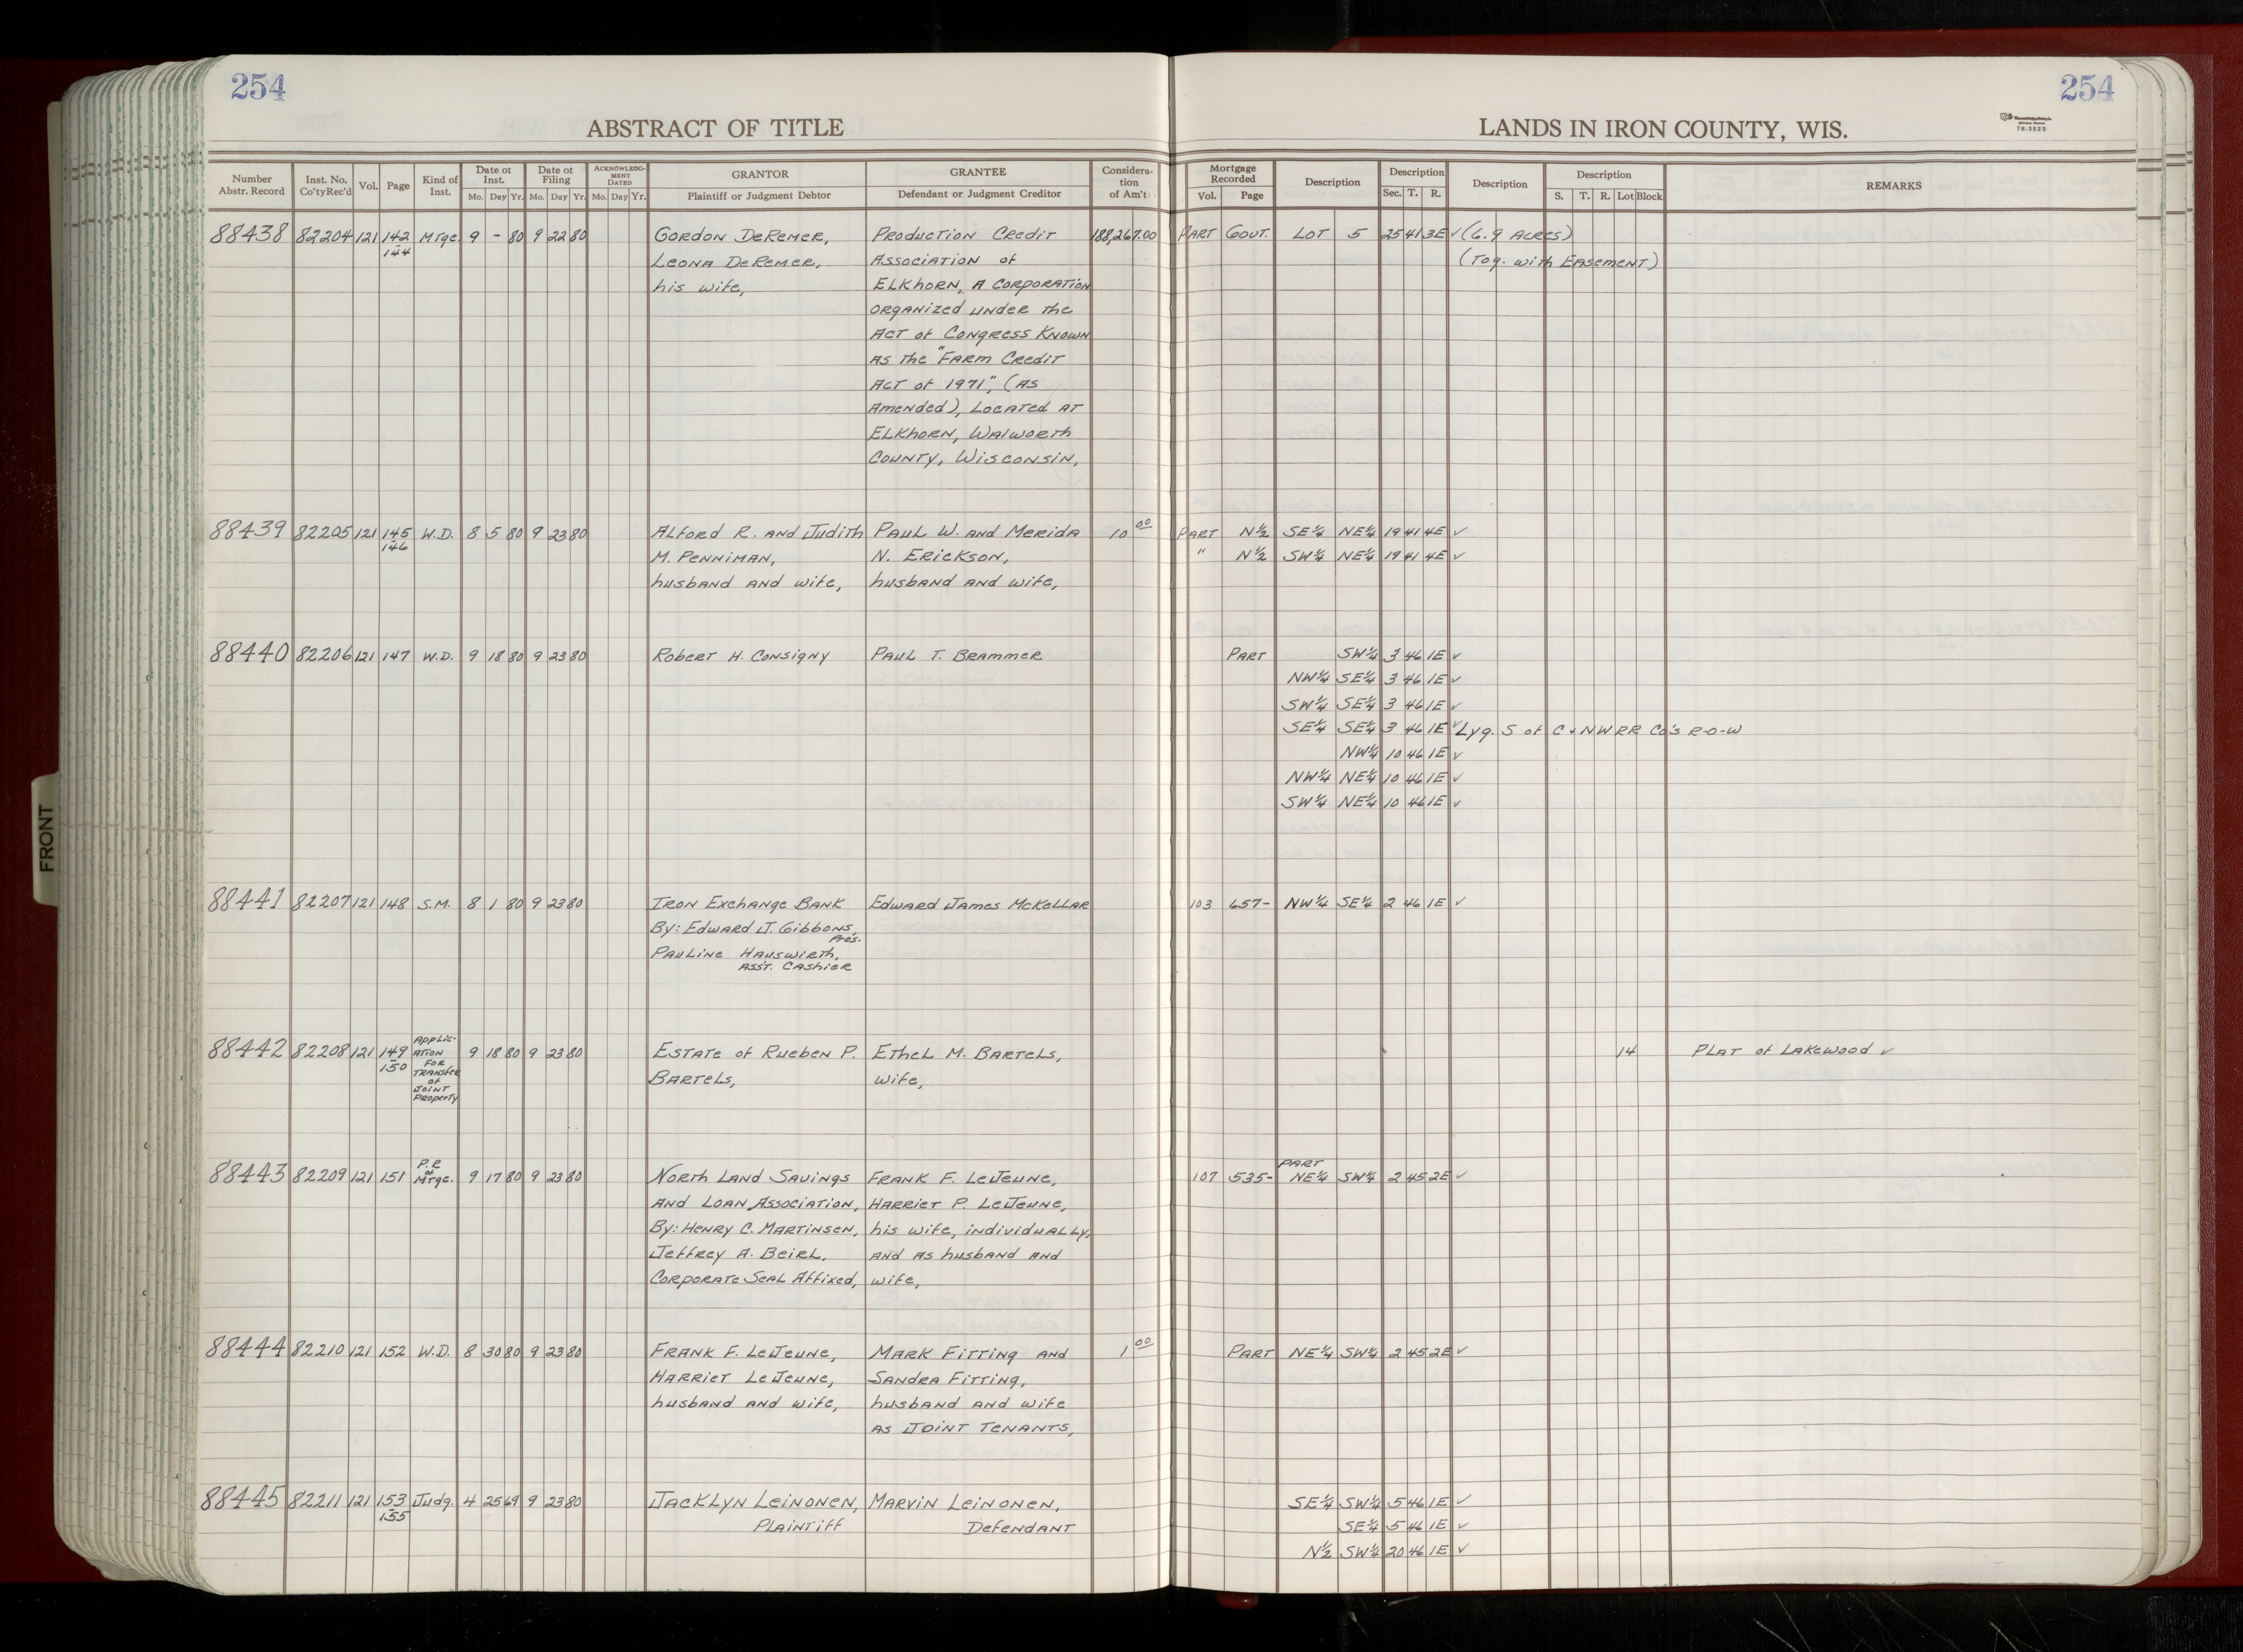 254
254
ABSTRACT OF TITLE
LANDS IN IRON COUNTY, WIS.
78-3525
Number Abstr. Record Inst. No. Co'tyRec'd Vol. Page Kind of Inst. Date of Inst. Mo. Day Yr. Date of Filing Mo. Day Yr. ACKNOWLEDGMENT DATED Mo. Day Yr. GRANTOR Plaintiff or Judgment Debtor GRANTEE Defendant or Judgment Creditor Consideration of Am't Mortgage Recorded Vol. Page Description Description Sec. T. R. Description Description S. T. R. Lot Block REMARKS
88438 82204 121 142 Mtge. 9 - 80 9 22 80 Gordon DeRemer, Production Credit 188,267.00 Part Gout. Lot 5 25 41 3E ✓ (6.9 Acres)
144 Leona DeRemer, Association of (Tog. with Easement)
his wife, Elkhorn, A Corporation
organized under the
Act of Congress Known
as the "Farm Credit
Act of 1971", (as
Amended), Located at
Elkhorn, Walworth
County, Wisconsin,
88439 82205 121 145 W.D. 8 5 80 9 23 80 Alford R. and Judith Paul W. and Merida 10 00 Part N½ SE¼ NE¼ 19 41 4E ✓
146 M. Penniman, N. Erickson, " N½ SW¼ NE¼ 19 41 4E ✓
husband and wife, husband and wife,
88440 82206 121 147 W.D. 9 18 80 9 23 80 Robert H. Consigny Paul T. Brammer Part SW¼ 3 46 1E ✓
NW¼ SE¼ 3 46 1E ✓
SW¼ SE¼ 3 46 1E ✓
SE¼ SE¼ 3 46 1E ✓ Lyg. S of C & NW RR Co's R-O-W
NW¼ 10 46 1E ✓
NW¼ NE¼ 10 46 1E ✓
SW¼ NE¼ 10 46 1E ✓
88441 82207 121 148 S.M. 8 1 80 9 23 80 Iron Exchange Bank Edward James McKellar 103 657- NW¼ SE¼ 2 46 1E ✓
By: Edward J. Gibbons,
Pres.
Pauline Hauswirth,
Ass't. Cashier
88442 82208 121 149 Application 9 18 80 9 23 80 Estate of Rueben P. Ethel M. Bartels, 14 Plat of Lakewood ✓
150 for Transfer of Joint Property Bartels, wife,
88443 82209 121 151 P.R of Mtge. 9 17 80 9 23 80 North Land Savings Frank F. LeJeune, 107 535- Part NE¼ SW¼ 2 45 2E ✓
and Loan Association, Harriet P. LeJeune,
By: Henry C. Martinsen, his wife, individually,
Jeffrey A. Beirl, and as husband and
Corporate Seal Affixed, wife,
88444 82210 121 152 W.D. 8 30 80 9 23 80 Frank F. LeJeune, Mark Fitting and 1 00 Part NE¼ SW¼ 2 45 2E ✓
Harriet LeJeune, Sandra Fitting,
husband and wife, husband and wife
as Joint Tenants,
88445 82211 121 153 Judg. 4 25 69 9 23 80 Jacklyn Leinonen, Marvin Leinonen, SE¼ SW¼ 5 46 1E ✓
155 Plaintiff Defendant SE¼ 5 46 1E ✓
N½ SW¼ 20 46 1E ✓
FRONT